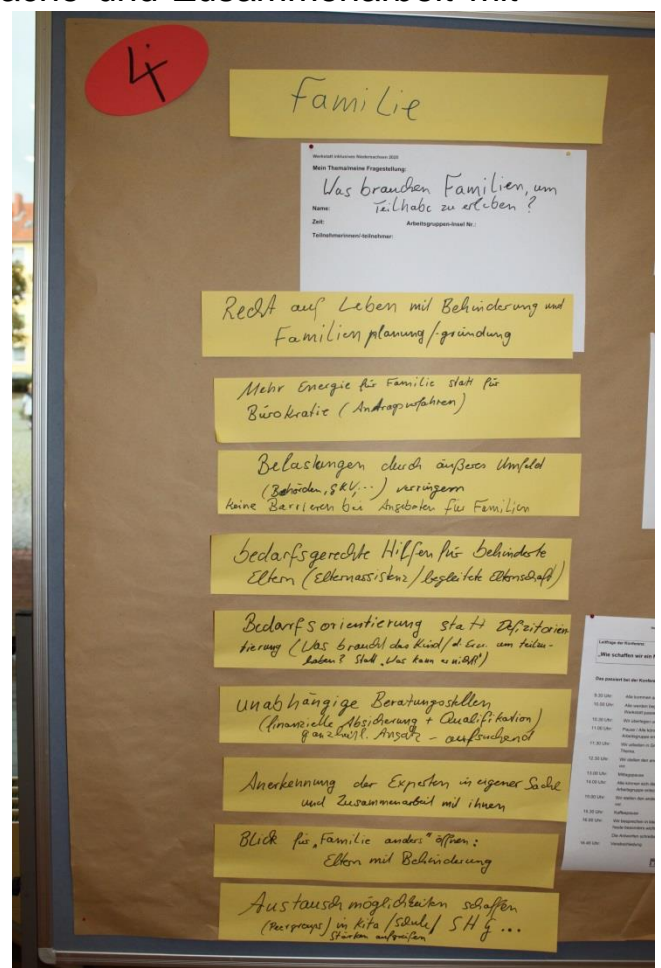 und Zusammenarbeit mit
4.
Familie
Werkstatt inklusives Niedersachsen 2020
Mein Thema/meine Fragestellung:
Was brauchen Familien, um
Teilhabe zu erleben?
Name:
Zeit:
Arbeitsgruppen-Insel Nr.:
Teilnehmerinnen/-teilnehmer:
Recht auf Leben mit Behinderung und
Familienplanung/-gründung
Mehr Energie für Familie statt für
Bürokratie (Antragsverfahren)
Belastungen durch äußeres Umfeld
(Behörden, GKV, ...) verringern
Keine Barrieren bei Angeboten für Familien
bedarfsgerechte Hilfen für behinderte
Eltern (Elternassistenz/begleitete Elternschaft)
Bedarfsorientierung statt Defizitorien
tierung (Was braucht das Kind/d. Erw. um teilzu-
haben? Statt „Was kann er nicht")
unabhängige Beratungsstellen
(finanzielle Absicherung + Qualifikation)
ganzheitl. Ansatz - aufsuchend
Anerkennung der Experten in eigener Sache
und Zusammenarbeit mit ihnen
Blick für „Familie anders" öffnen:
Eltern mit Behinderung
Austauschmöglichkeiten schaffen
(Peergroups) in Kita/Schule/SHG...
Stärken aufgreifen
Leitfrage der Konferenz
„Wie schaffen wir ein
Das passiert bei der Konfe
9.30 Uhr
10.00 Uhr
10.30 Uhr
11.00 Uhr
11.30 Uhr
12.30 Uhr
13.00 Uhr
15.30 Uhr
16.00 Uhr
16.40 Uhr